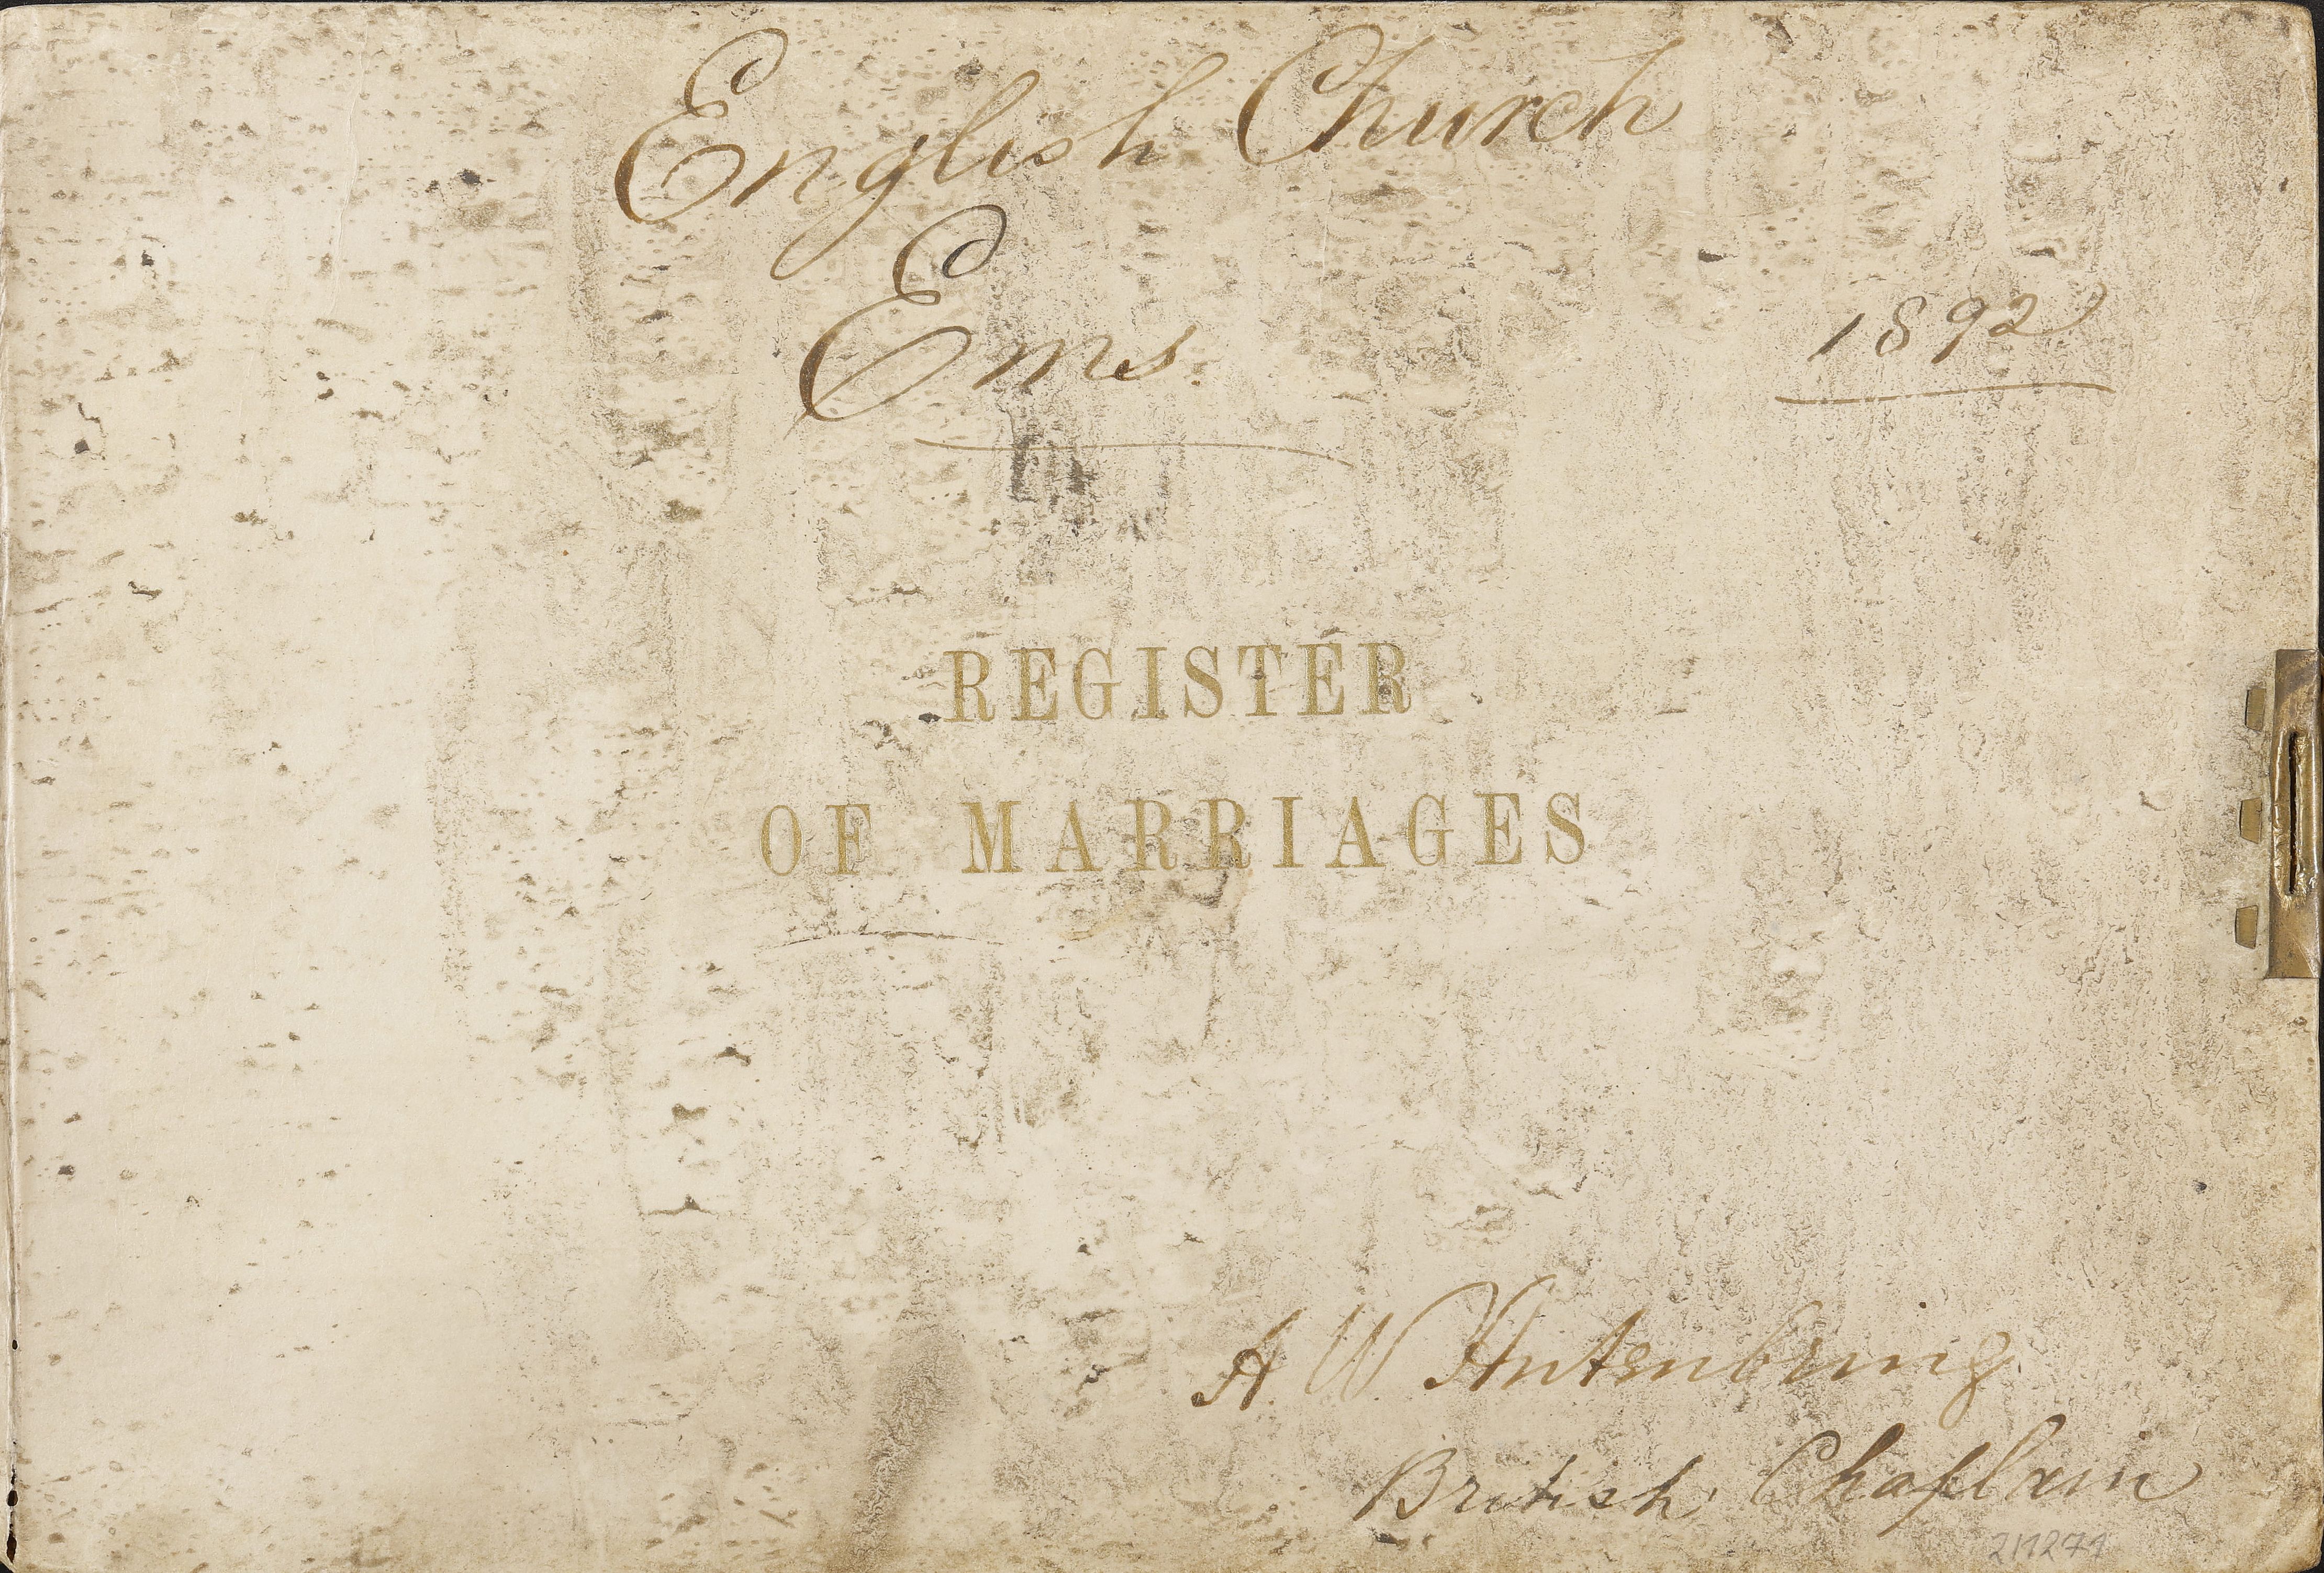 English Church
Ems.
1892
REGISTER
OF MARRIAGES
A. W.
British Chaplain